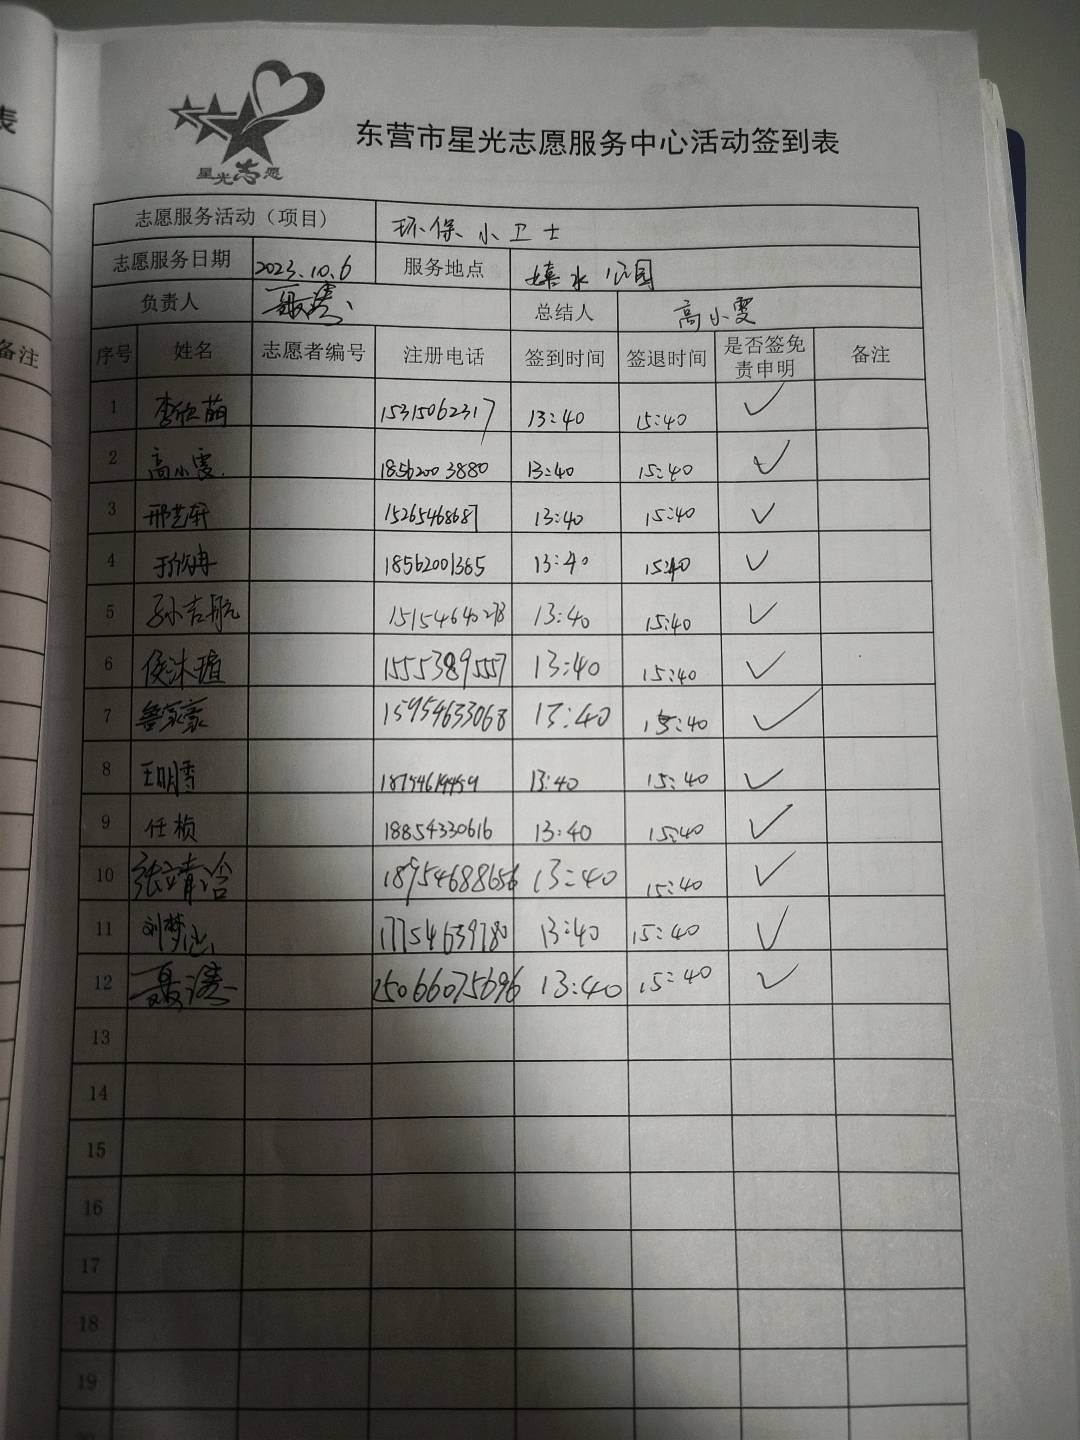 表
备注
星光志愿
东营市星光志愿服务中心活动签到表
志愿服务活动（项目） 环保小卫士
志愿服务日期 2023.10.6 服务地点 嬉水公园
负责人 聂涛 总结人 高小雯
序号 姓名 志愿者编号 注册电话 签到时间 签退时间 是否签免责申明 备注
1 李欣萌 15315062317 13:40 15:40 ✓
2 高小雯 18562003880 13:40 15:40 ✓
3 邢艺轩 15265468687 13:40 15:40 ✓
4 18562001385 13:40 15:40 ✓
5 孙吉航 15154640278 13:40 15:40 ✓
6 侯沐瑄 15553895557 13:40 15:40 ✓
7 鲁家豪 15954633068 13:40 15:40 ✓
8 王明雪 13:40 15:40 ✓
9 任桢 18854330616 13:40 15:40 ✓
10 张靖涵 18954688656 13:40 15:40 ✓
11 刘梦 17754639780 13:40 15:40 ✓
12 聂涛 15066075696 13:40 15:40 ✓
13
14
15
16
17
18
19